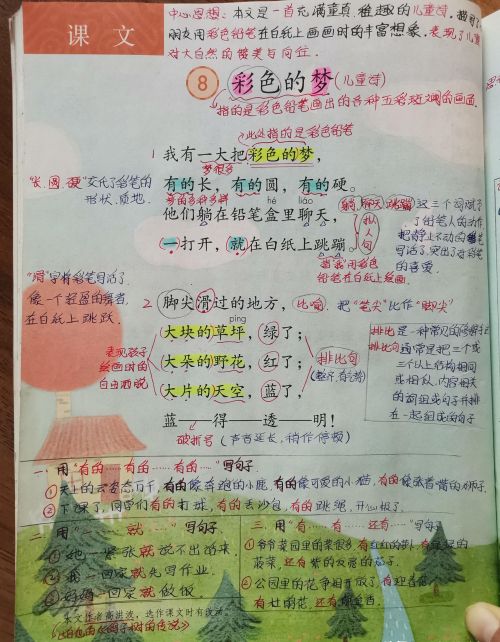 课文
中心思想：本文是一首充满童真、童趣的儿童诗，描写了
朋友用彩色铅笔在白纸上画画时的丰富想象，表现了儿童
对大自然的赞美与向往。
8 彩色的梦（儿童诗）
指的是彩色铅笔画出的各种五彩斑斓的画面。
此处指的是彩色铅笔
1 我有一大把彩色的梦，
梦很多
有的长，有的圆，有的硬。
梦的多种多样
hé liáo
他们躺在铅笔盒里聊天，
一打开，就在白纸上跳蹦。
"长、圆、硬"交代了彩笔的
形状、质地。
躺、聊天、跳蹦 这三个词赋予
了彩笔人的动作
拟人句
把静止不动的
写活了，突出了对彩笔
的喜爱。
指我用彩色
铅笔在白纸上绘画。
"滑"字将彩笔写活了，
像一个轻盈的舞者，
在白纸上跳跃。
2 脚尖滑过的地方，
比喻 把"笔尖"比作"脚尖"
píng
大块的草坪，绿了；
大朵的野花，红了；
大片的天空，蓝了，
表现孩子
绘画时的
自由洒脱
排比句
蓝——得——透——明！
破折号（声音延长，稍作停顿）
排比是一种常见的修辞手法
排比句通常是把三个或
三个以上结构相同
或相似、内容相关
的词组或句子并排
在一起组成的句子
一、用"有的……有的……有的……"写句子.
①天上的云姿态万千，有的像奔跑的小鹿，有的像可爱的小猫，有的像张着嘴的狮子.
②下课了，同学们有的打球，有的丢沙包，有的跳绳，开心极了.
二、用"一……就……"写句子.
①她一紧张就说不出话来.
②我一回家就先写作业.
③妈妈一回家就做饭.
三、用"有……有……还有……"写句子
①爷爷菜园里的菜很多，有红红的
菠菜，还有紫的发亮的茄子.
②公园里的花争相开放了，有迎春花，
有牡丹花，还有
本文作者高洪波，选作课文时有改动。